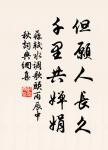 但願人長久
千里共嬋娟
蘇軾水調歌頭丙辰中
秋詞典網集